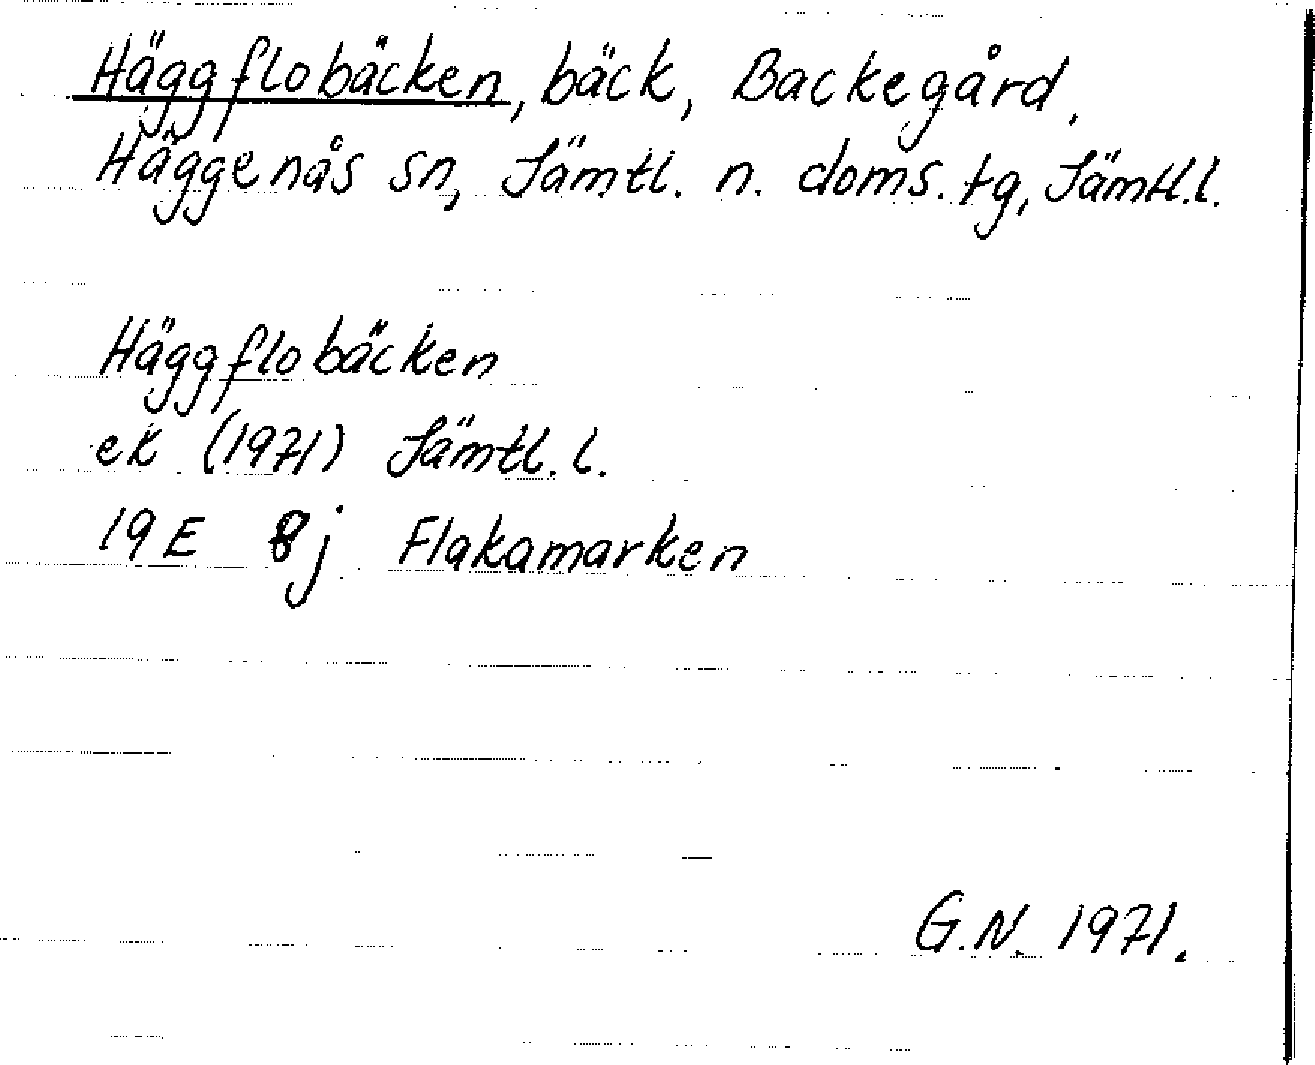 Häggflobäcken, bäck, Backegård,
Häggenås sn, Jämtl. n. doms. tg, Jämtl.l.
Häggflobäcken
ek (1971) Jämtl. l.
19 E 8j Flakamarken
G.N. 1971.